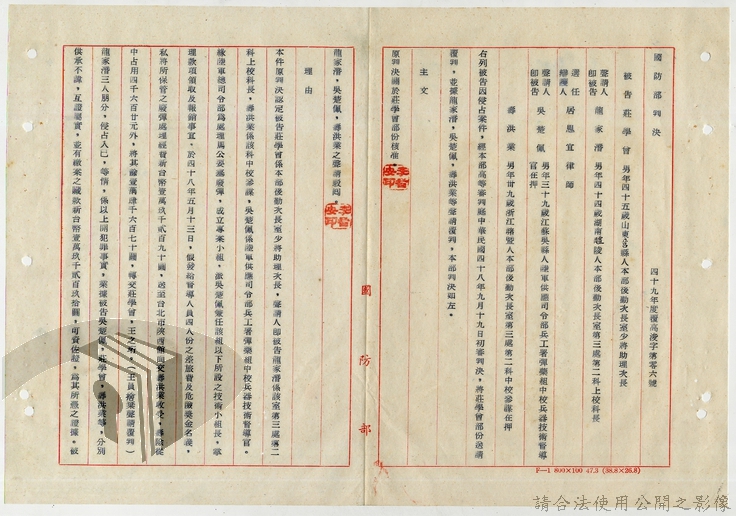 國防部判決
四十九年度覆高淩字第零六號
被告 莊學曾 男年四十五歲山東 縣人本部後勤次長室少將助理次長
聲請人即被告 龍家濳 男年四十四歲湖南 陵人本部後勤次長室第三處第二科上校科長
選任辯護人 居恩宜律師
聲請人即被告 吳楚佩 男年三十九歲江蘇吳縣人陸軍供應司令部兵工署彈藥組中校兵器技術督導官在押
尋洪業 男年卅九歲浙江諸暨人本部後勤次長室第三處第二科中校參謀在押
右列被告因侵占案件,經本部高等審判庭中華民國四十八年九月十九日初審判決,將莊學曾部份送請
覆判,並據龍家濳,吳楚佩,尋洪業等聲請覆判,本部判決如左。
主文
原判決關於莊學曾部份核准。
龍家濳,吳楚佩,尋洪業之聲請駁回。
理由
本件原判決認定被告莊學曾係本部後勤次長室少將助理次長,聲請人即被告龍家濳係該室第三處第二
科上校科長,尋洪業係該科中校參謀,吳楚佩係陸軍供應司令部兵工署彈藥組中校兵器技術督導官。
緣陸軍總司令部為處理馬公 廢彈,成立專案小組,派吳楚佩兼任該組以下所設之技術小組長,掌
理款項領取及報銷事宜,於四十八年五月十三日,假發給督導人員四人份之差旅費及危險獎金名義,
私將所保管之廢彈處理經費新台幣壹萬玖千貳百九十圓,送至台北市陝西餐館面交尋洪業收受,尋 從
中占用四千六百廿元外,將其餘壹萬肆千六百七十圓,轉交莊學曾,王之珩,(王員 聲請覆判)
龍家濳三人朋分,侵占入己,等情,係以上開犯罪事實,業據被告吳楚佩,莊學曾,尋洪業等,分別
供承不諱,互證屬實,並有繳案之贓款新台幣壹萬玖千貳百玖拾圓,可資佐證,為其所憑之證據。被
國防部
F—1 800×100 47.3 (38.8×26.8)
請合法使用公開之影像